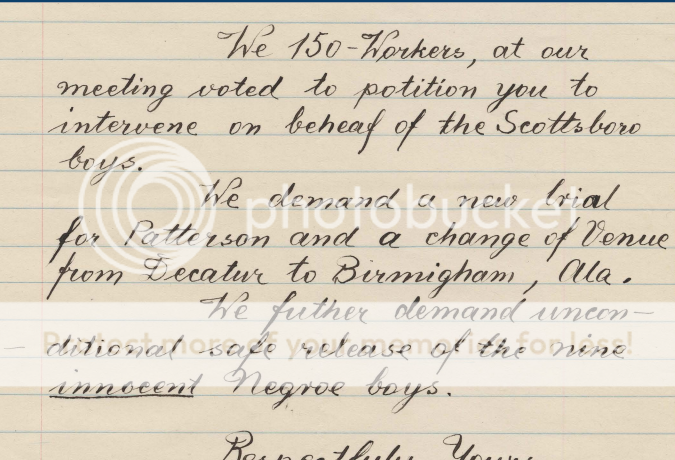 We 150-Workers, at our
meeting voted to potition you to
intervene on beheaf of the Scottsboro
boys.
We demand a new trial
for Patterson and a change of Venue
from Decatur to Birmigham, Ala.
We futher demand uncon-
ditional safe release of the nine
innocent Negroe boys.
Respectfully Yours
photobucket
Protect more of your memories for less!